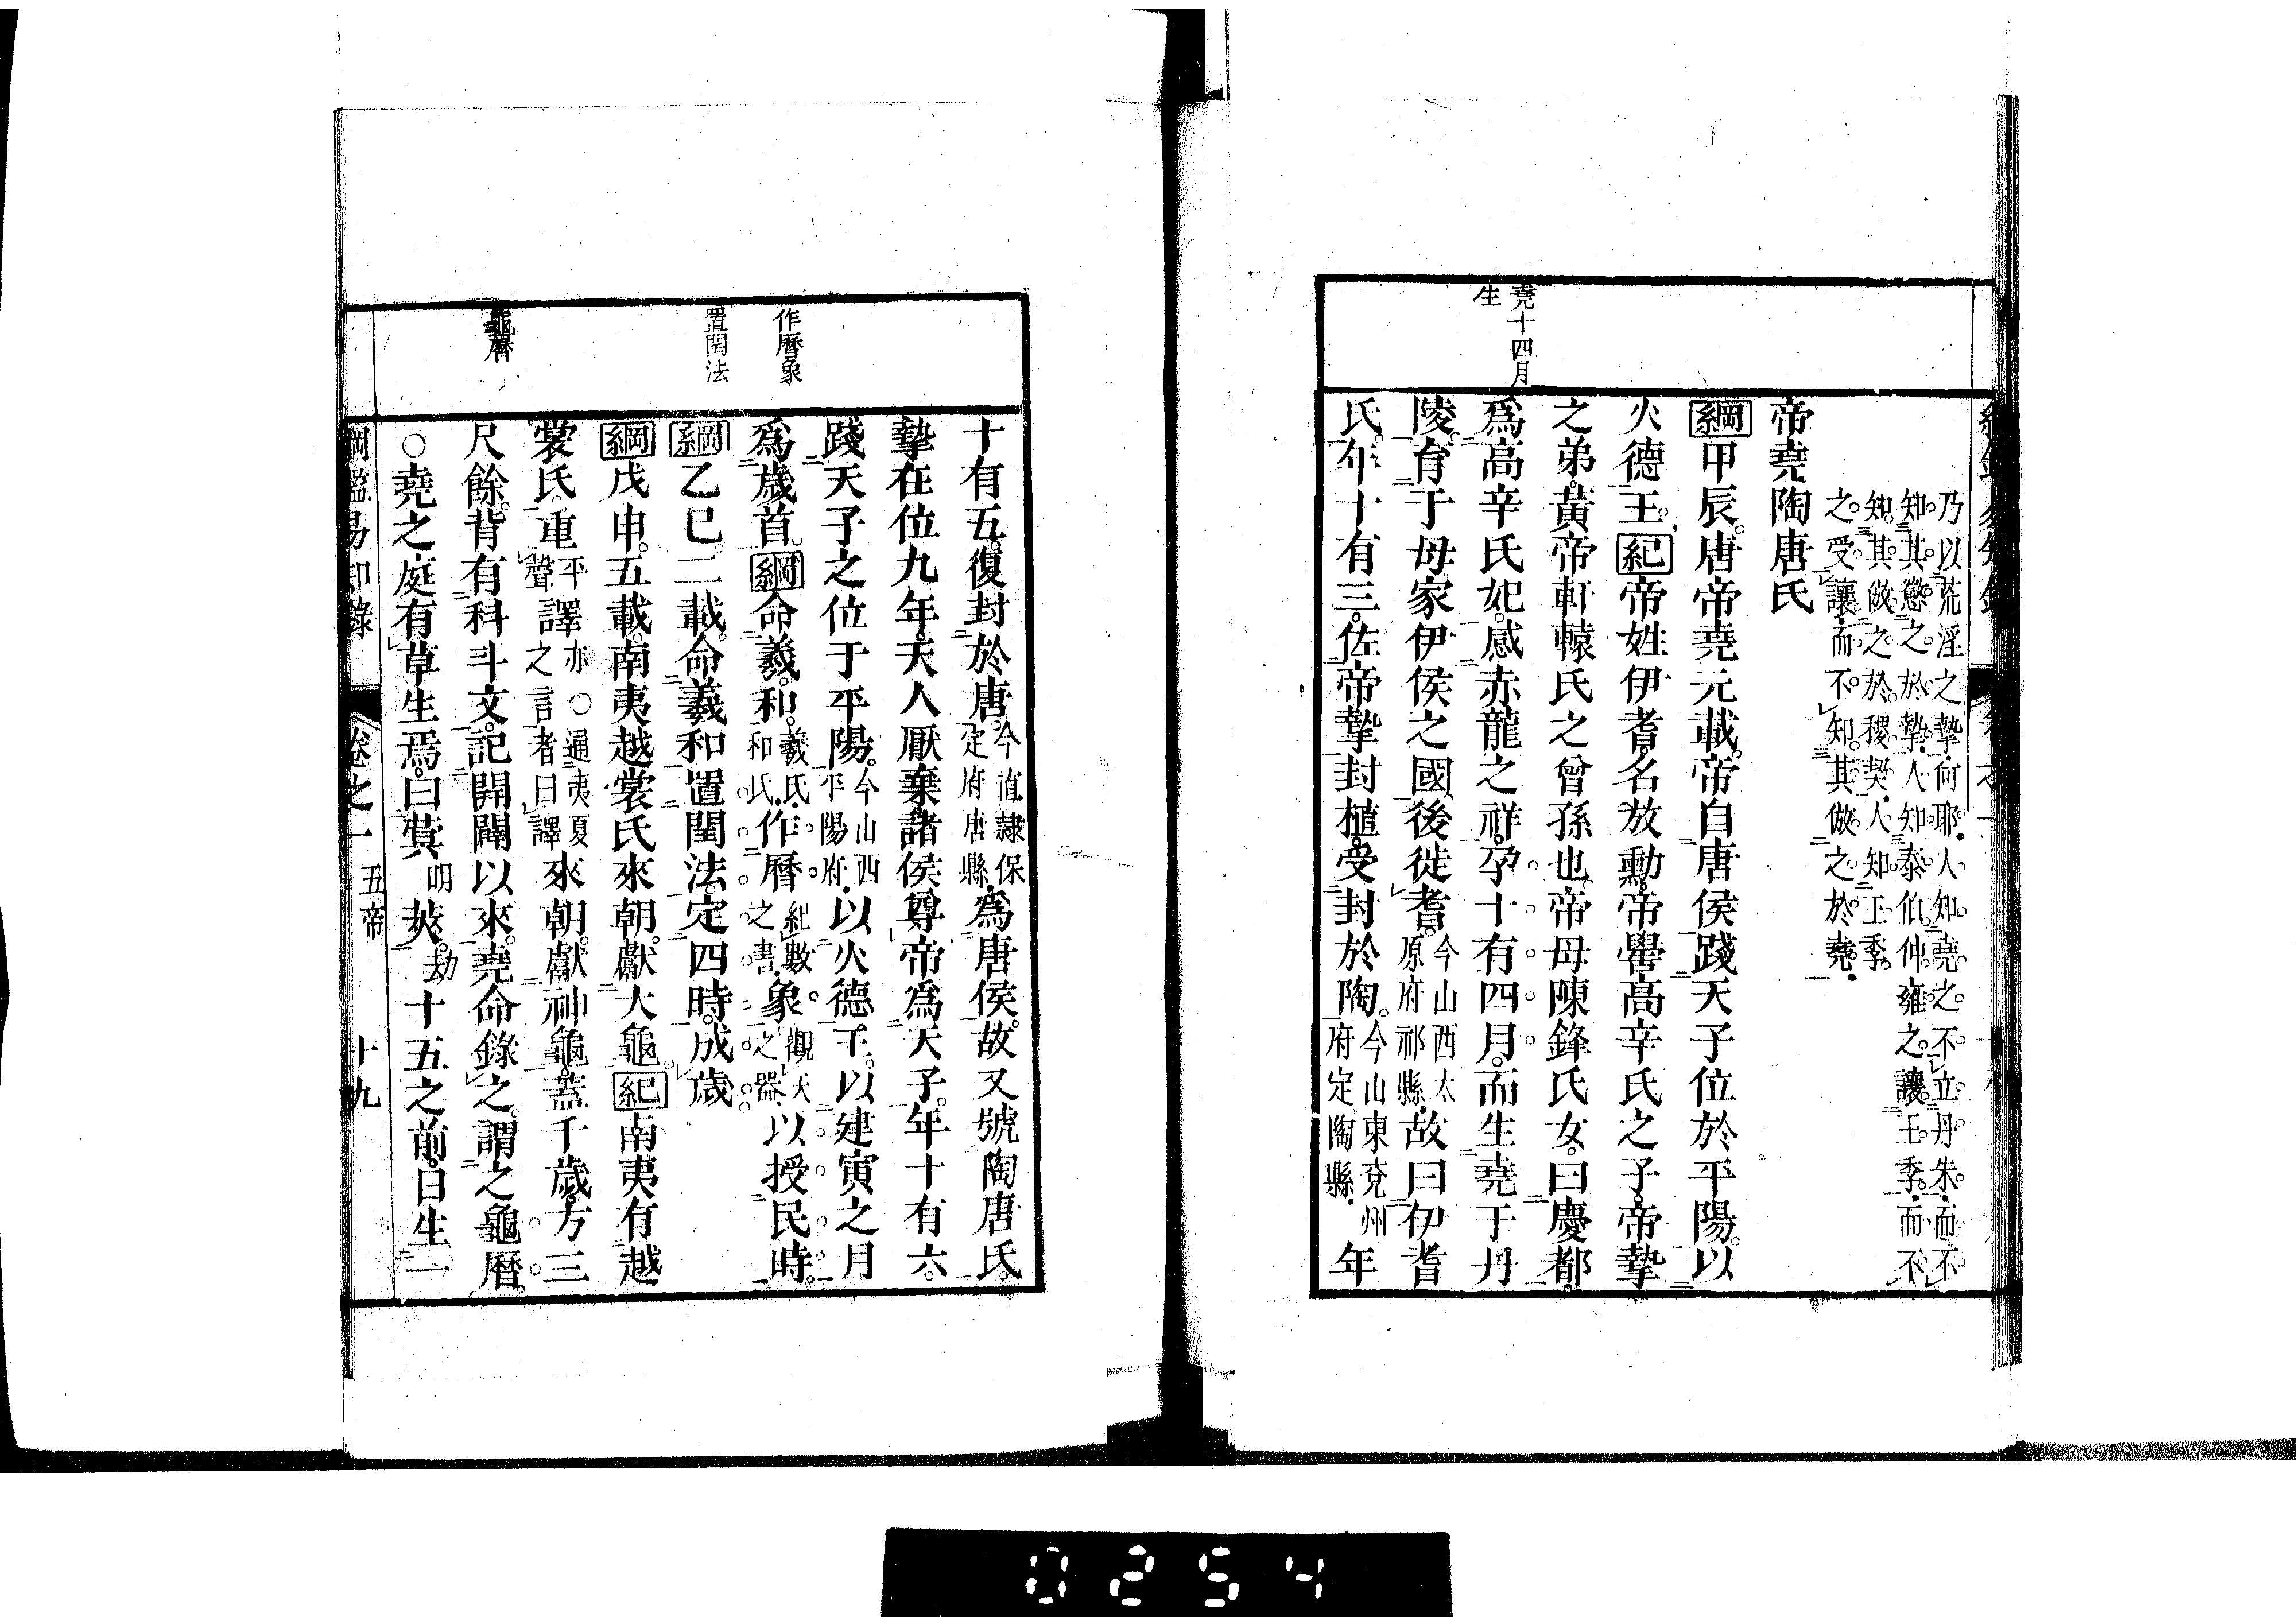 乃以荒淫之摯何耶人知堯之不立丹朱而不
知其慾之於摯人知泰伯仲雍之讓王季而不
知其傚之於稷契人知王季
之受讓而不知其傚之於堯
帝堯陶唐氏
綱甲辰唐帝堯元載帝自唐侯踐天子位於平陽以
火德王紀帝姓伊耆名放勳帝嚳高辛氏之子帝摯
之弟黃帝軒轅氏之曾孫也帝母陳鋒氏女曰慶都
堯十四月
生
爲高辛氏妃感赤龍之祥孕十有四月而生堯于丹
陵育于母家伊侯之國後徙耆今山西太原府祁縣故曰伊耆
氏年十有三佐帝摯封植受封於陶今山東兗州府定陶縣年
十有五復封於唐今直隷保定府唐縣爲唐侯故又號陶唐氏
摯在位九年天人厭棄諸侯尊帝爲天子年十有六
踐天子之位于平陽今山西平陽府以火德王以建寅之月
作曆象
爲歲首綱命羲和羲氏和氏作曆紀數之書象觀天之器以授民時
置閏法
綱乙巳二載命羲和置閏法定四時成歲
綱戊申五載南夷越裳氏來朝獻大龜紀南夷有越
裳氏重平聲譯亦○通夷夏之言者曰譯來朝獻神龜蓋千歲方三
龜曆
尺餘背有科斗文記開闢以來堯命錄之謂之龜曆
○堯之庭有草生焉曰蓂明莢劫十五之前日生一
綱鑑易知錄 卷之一 五帝 十九
0254